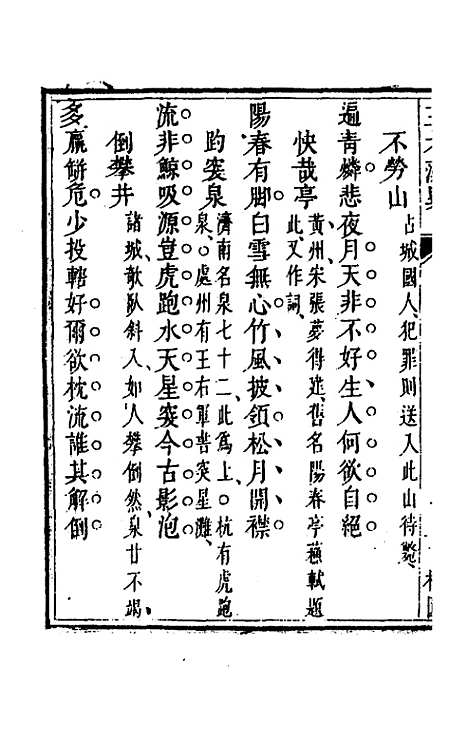 不勞山 占城國人、犯罪則送入此山待斃、
遍青燐悲夜月天非不好生人何欲自絕
快哉亭 黃州、宋張夢得建、舊名陽春亭、蘇軾題
此、又作詞、
陽春有脚白雪無心竹風披領松月開襟
趵突泉 濟南名泉七十二、此為上、○杭有虎跑
泉、○處州有王右軍書突星瀨、
流非鯨吸源豈虎跑水天星突今古影泡
倒攀井 諸城欹臥斜入、如人攀倒然、泉甘不竭、
多羸缾危少投轄好爾欲枕流誰其解倒